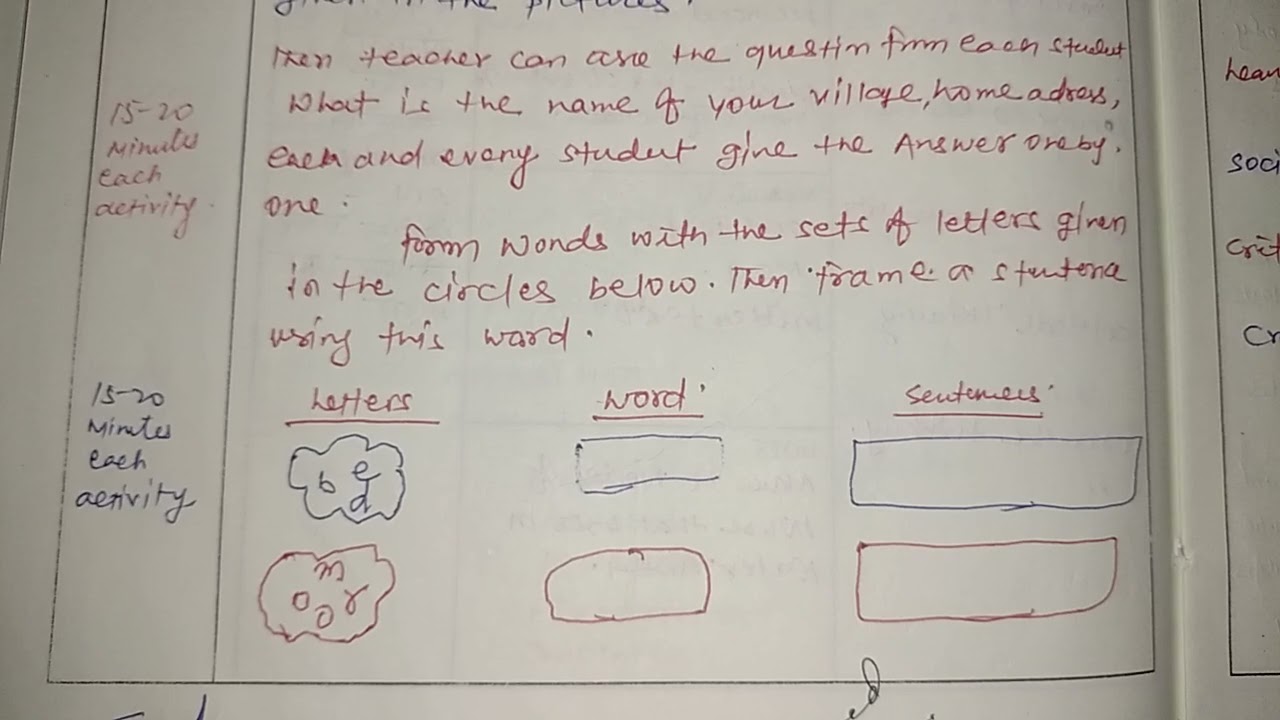 given in the pictures.
Then teacher can ask the question from each student
What is the name of your village, home adress,
each and every student give the Answer one by.
one.
15-20
Minutes
each
activity.
form words with the sets of letters given
in the circles below. Then frame a
using this word.
15-20
Minutes
each
activity
Letters
Word
Sentences
b e d
m o o r
hean
soci
crit
Cr